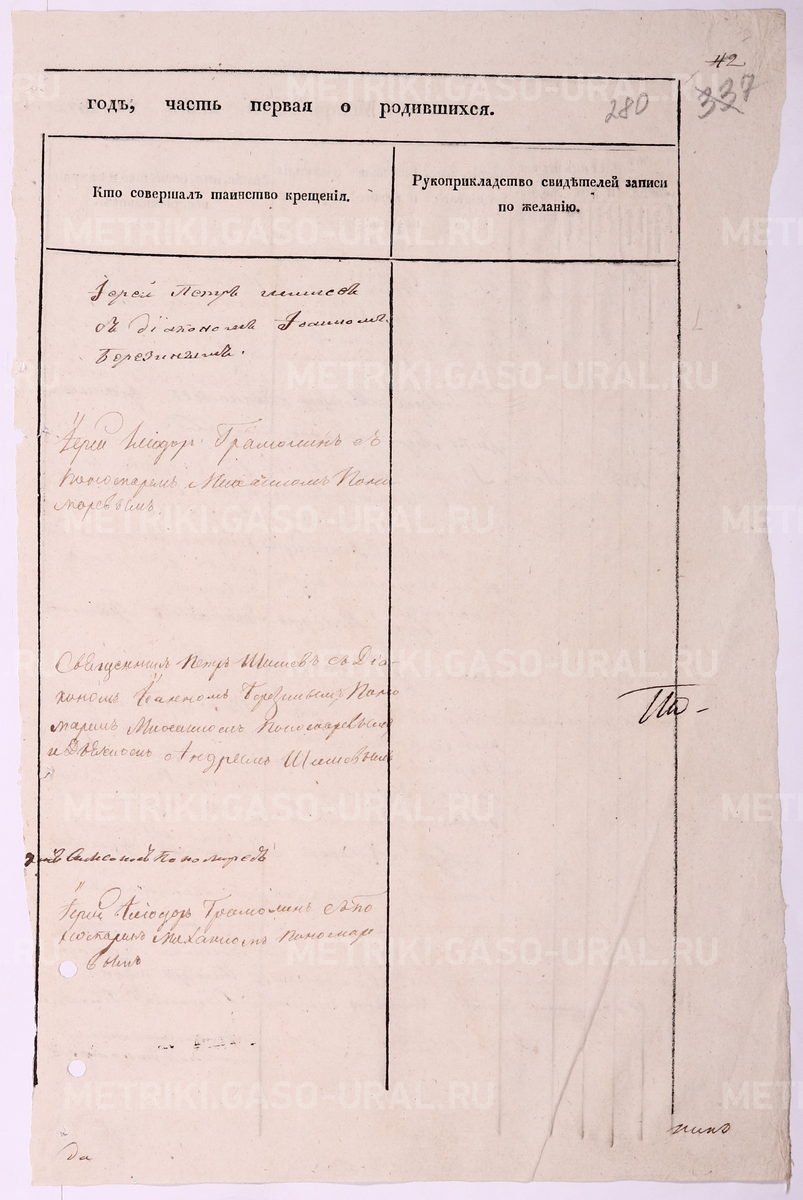 42
337
280
годъ, часть первая о родившихся.
Кто совершалъ таинство крещенія.
Рукоприкладство свидѣтелей записи
по желанію.
Іерей Петръ Шишевъ
съ діакономъ Іоанномъ
Березинымъ.
Іерей Иліодоръ Грамолинъ съ
Пономаремъ Михаиломъ Поно
маревымъ.
Священникъ Петръ Шишевъ съ Діа-
кономъ Іоанномъ Березинымъ Поно
маремъ Михаиломъ Пономаревымъ
и Андреемъ Шишевымъ
Симеонъ Пономаревъ
Іерей Иліодоръ Грамолинъ съ По
номаремъ Михаиломъ Пономаре
вымъ
да
METRIKI.GASO-URAL.RU